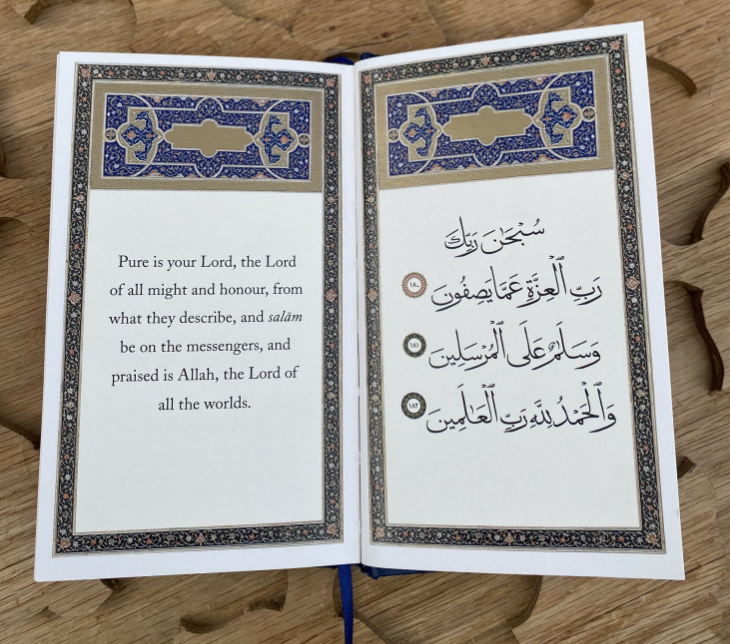 Pure is your Lord, the Lord
of all might and honour, from
what they describe, and salām
be on the messengers, and
praised is Allah, the Lord of
all the worlds.
سُبْحَٰنَ رَبِّكَ
رَبِّ ٱلْعِزَّةِ عَمَّا يَصِفُونَ ١٨٠
وَسَلَٰمٌ عَلَى ٱلْمُرْسَلِينَ ١٨١
وَٱلْحَمْدُ لِلَّهِ رَبِّ ٱلْعَٰلَمِينَ ١٨٢